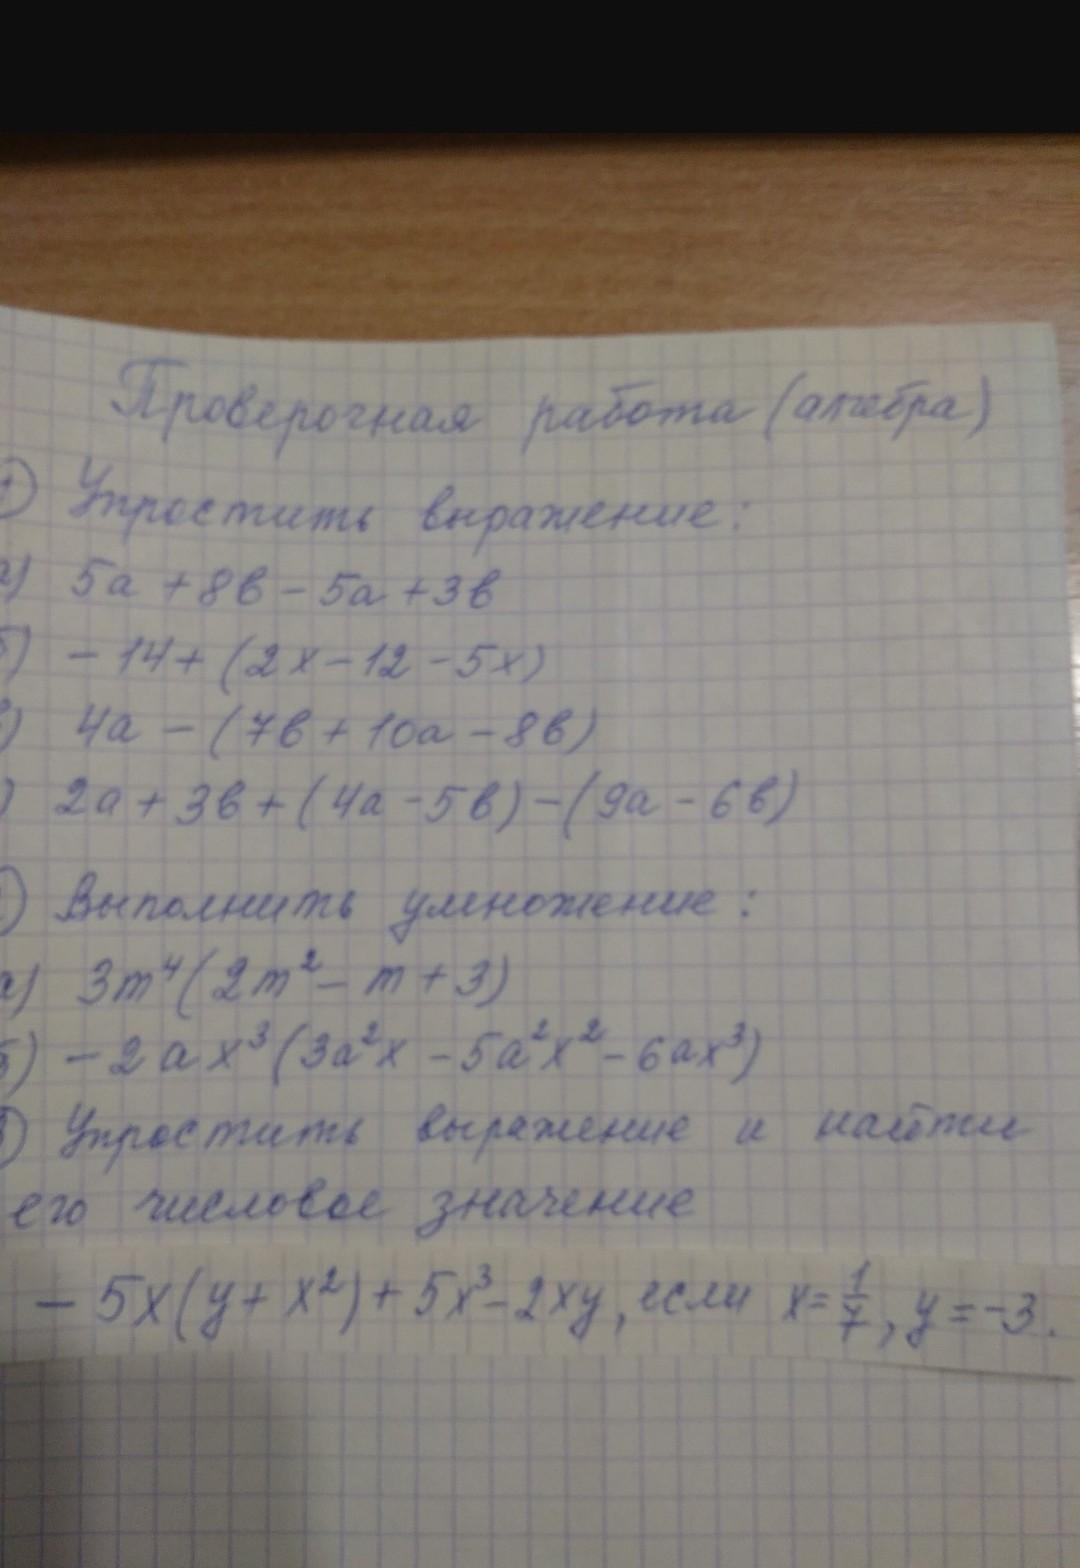 Проверочная работа (алгебра)
1) Упростить выражение:
а) 5а + 8в - 5а + 3в
б) - 14 + (2х - 12 - 5х)
в) 4а - (7в + 10а - 8в)
) 2а + 3в + (4а - 5в) - (9а - 6в)
) Выполнить умножение:
а) 3m⁴(2m² - m + 3)
б) - 2ах³(3а²х - 5а²х² - 6ах³)
) Упростить выражение и найти
его числовое значение
- 5х(у + х²) + 5х³ - 2ху, если х = 1/7, у = -3.